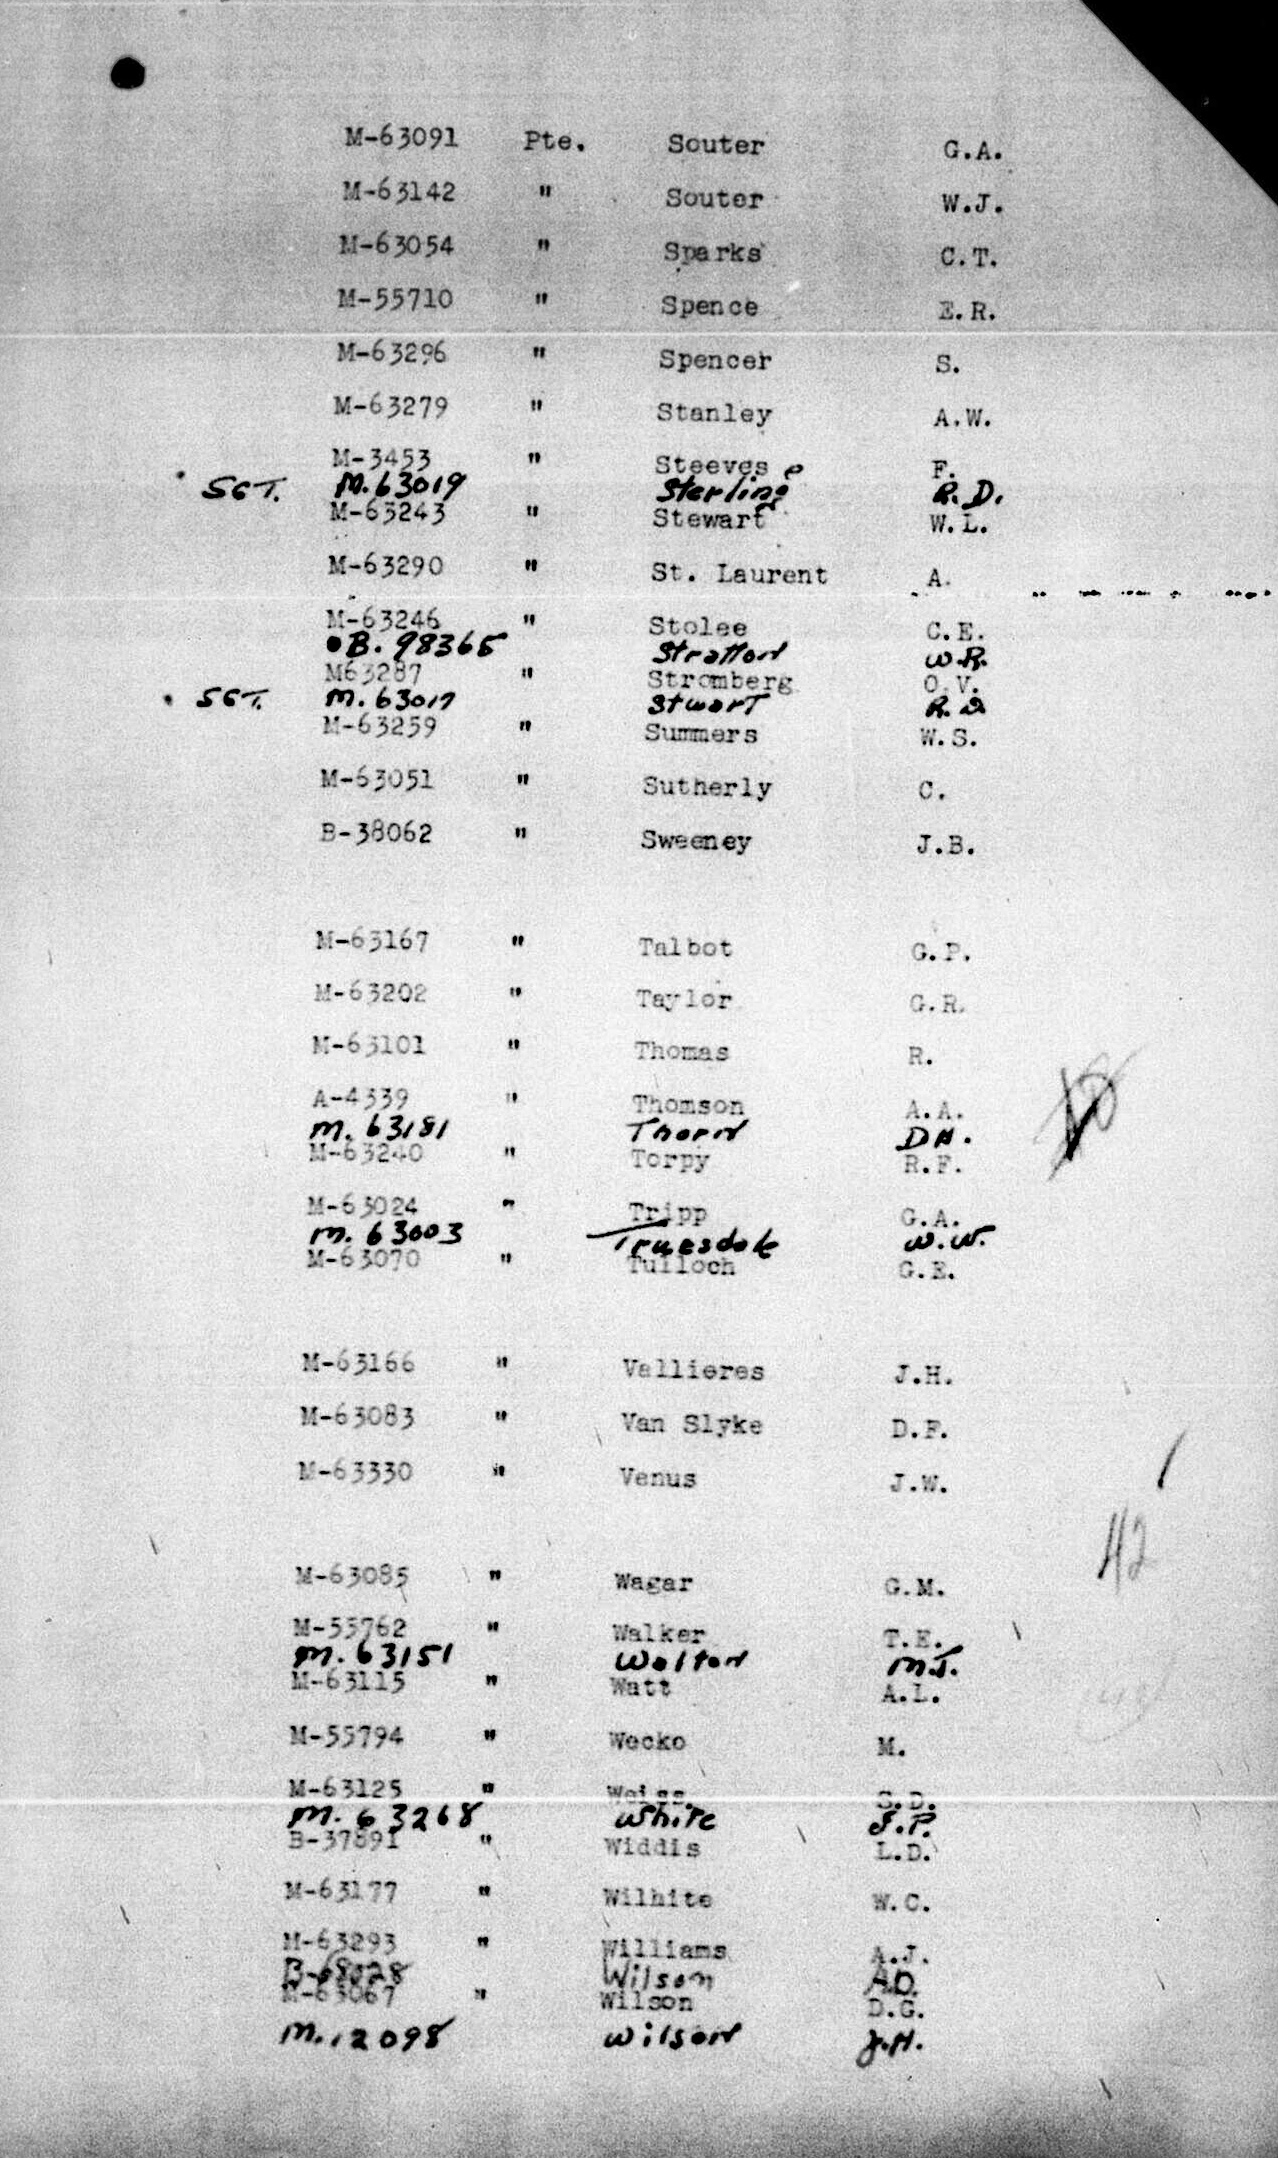 M-63091 Pte. Souter G.A.
M-63142 " Souter W.J.
M-63054 " Sparks C.T.
M-55710 " Spence E.R.
M-63296 " Spencer S.
M-63279 " Stanley A.W.
M-3453 " Steeves F.
SGT. M.63019 Sterling R.D.
M-63243 " Stewart W.L.
M-63290 " St. Laurent A.
M-63246 " Stolee C.E.
B. 98365 Stratton W.R.
M63287 " Stromberg O.V.
SGT. M. 63017 Stwart R.D
M-63259 " Summers W.S.
M-63051 " Sutherly C.
B-38062 " Sweeney J.B.
M-63167 " Talbot G.P.
M-63202 " Taylor G.R.
M-63101 " Thomas R.
A-4339 " Thomson A.A.
M. 63181 Thorn D H.
M-63240 " Torpy R.F.
M-63024 " Tripp G.A.
M. 63003 Truesdale W.W.
M-63070 " Tulloch G.E.
M-63166 " Vallieres J.H.
M-63083 " Van Slyke D.F.
M-63330 " Venus J.W.
42
M-63085 " Wagar G.M.
M-55762 " Walker T.E.
M. 63151 Walton M.J.
M-63115 " Watt A.L.
M-55794 " Wecko M.
M-63125 " Weiss S.D.
M. 63268 White J.P.
B-37891 " Widdis L.D.
M-63177 " Wilhite W.C.
M-63293 " Williams A.J.
Wilson A.D.
M-63067 " Wilson D.G.
M.12098 Wilson J.H.